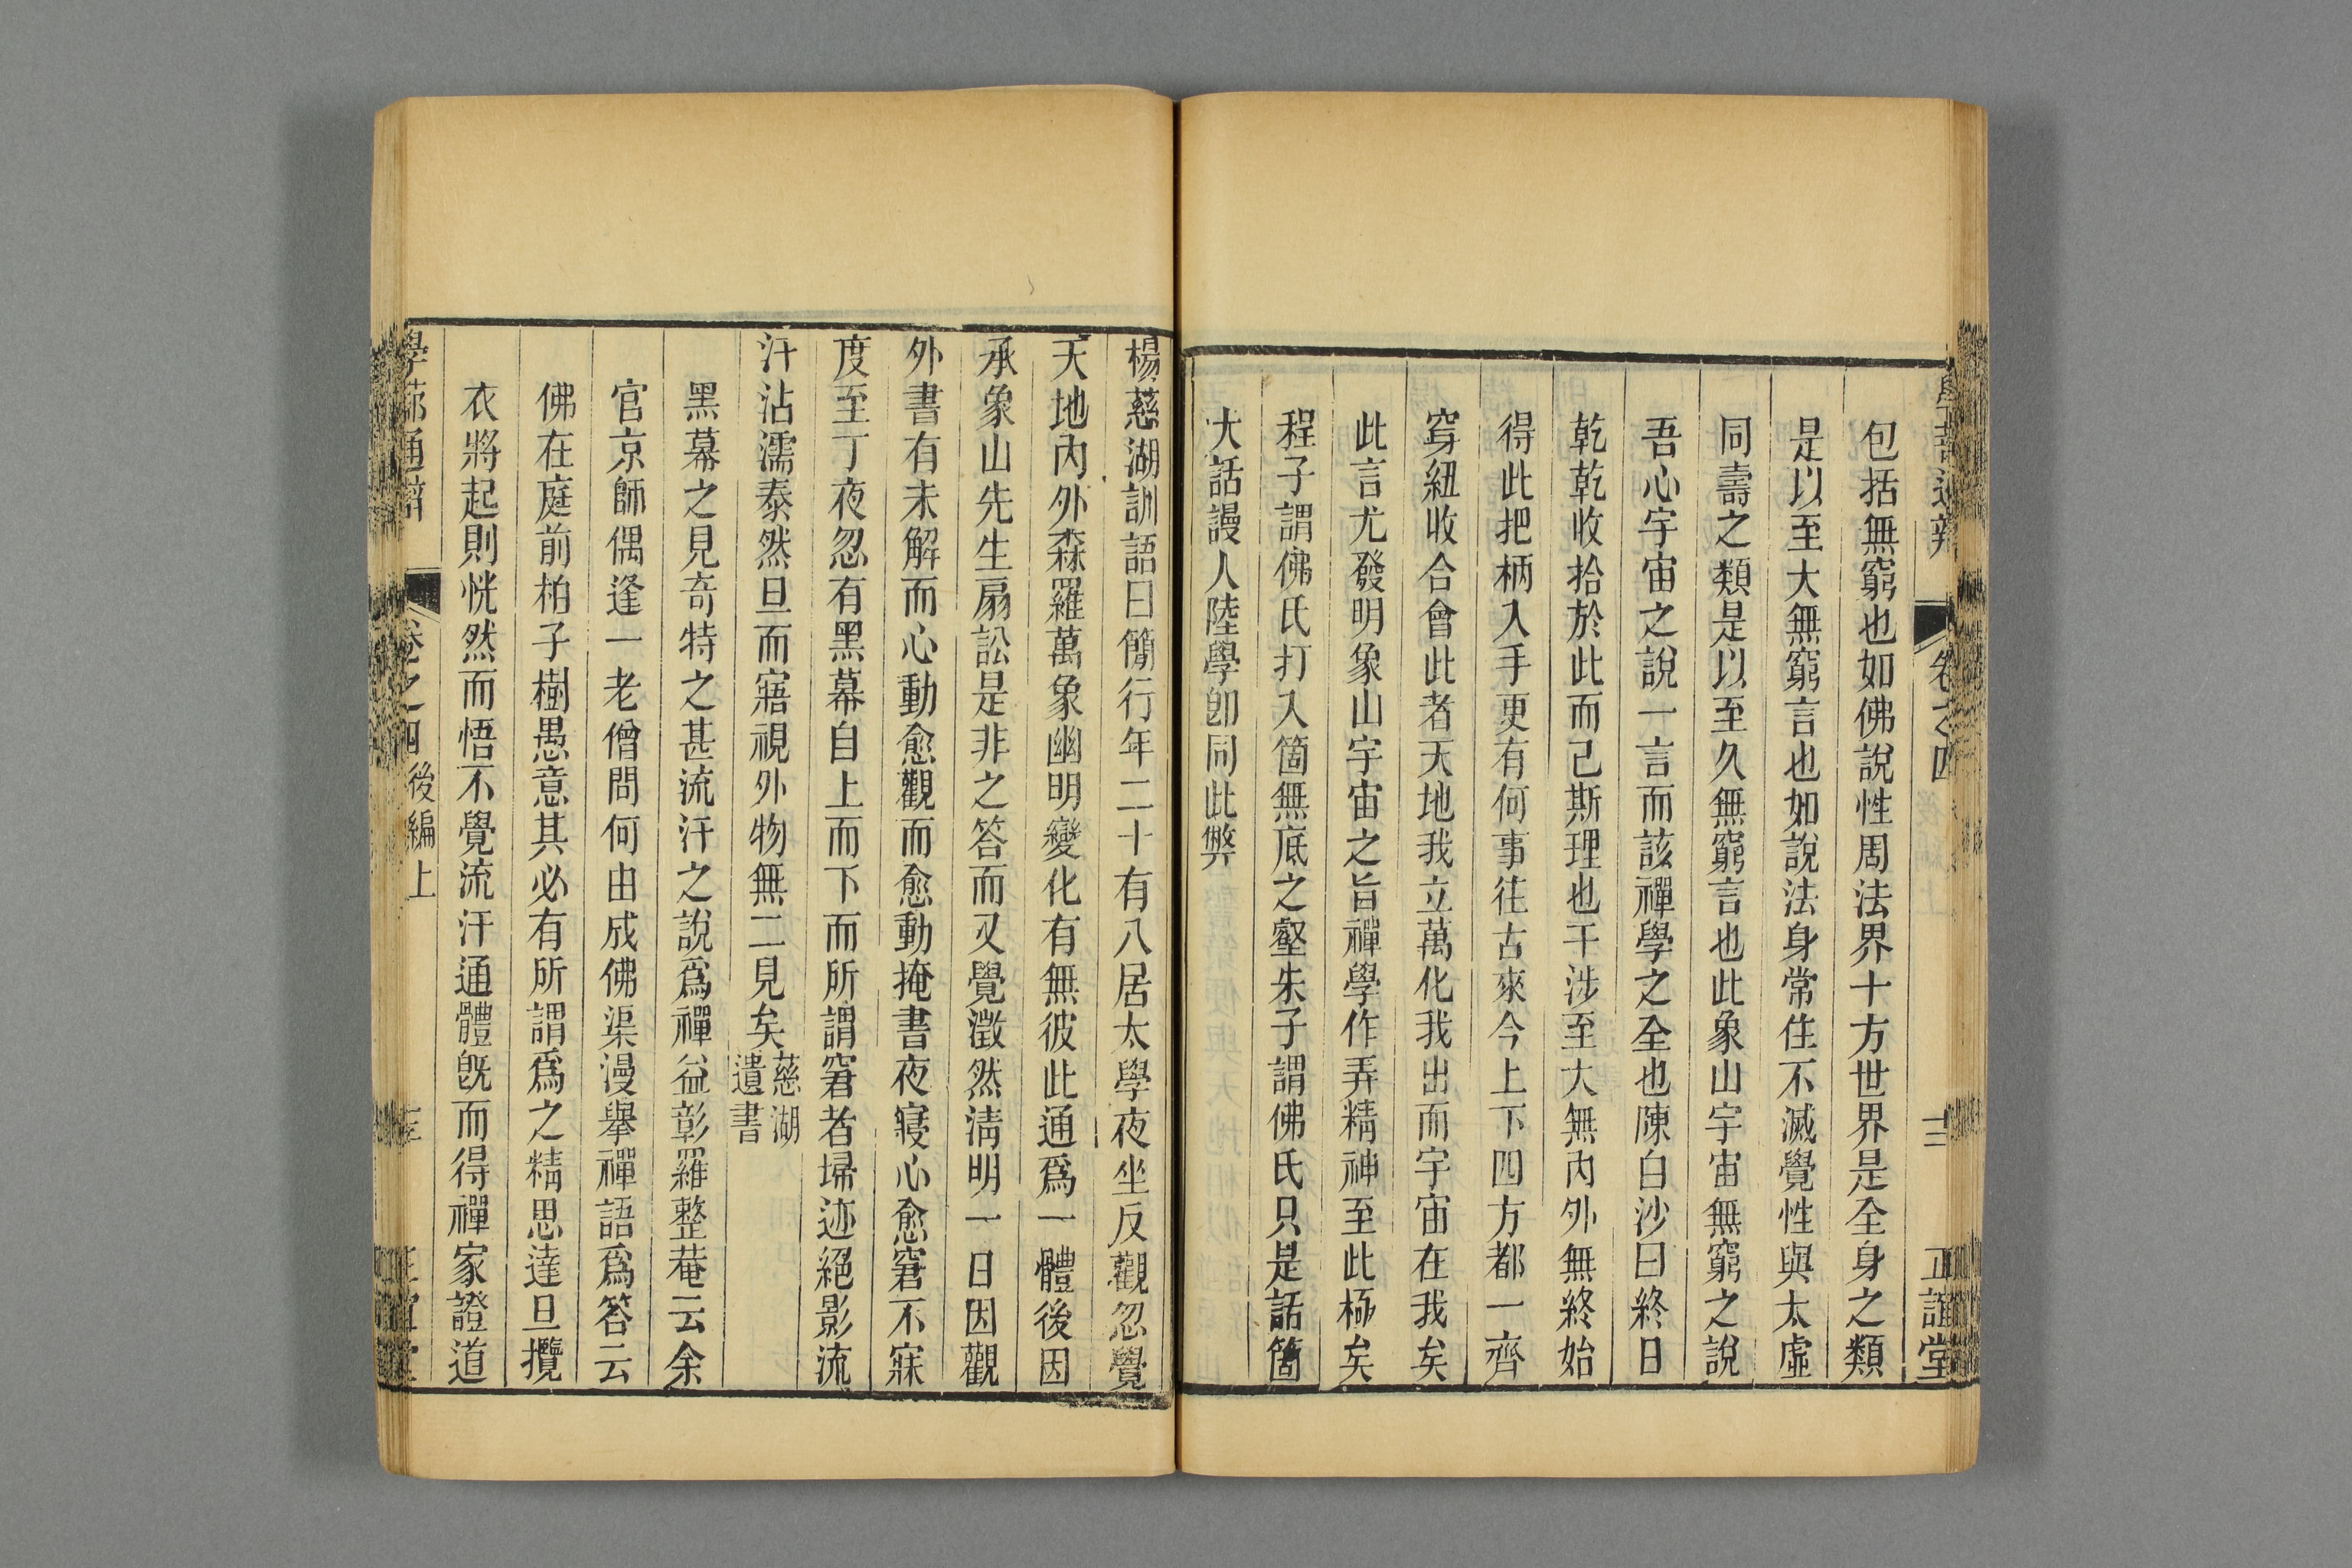 包括無窮也如佛說性周法界十方世界是全身之類
是以至大無窮言也如說法身常住不滅覺性與太虛
同壽之類是以至久無窮言也此象山宇宙無窮之說
吾心宇宙之說一言而該禪學之全也陳白沙曰終日
乾乾收拾於此而已斯理也干涉至大無內外無終始
得此把柄入手更有何事往古來今上下四方都一齊
穿紐收合會此者天地我立萬化我出而宇宙在我矣
此言尤發明象山宇宙之旨禪學作弄精神至此極矣
程子謂佛氏打入箇無底之壑朱子謂佛氏只是話箇
大話謾人陸學卽同此弊
楊慈湖訓語曰簡行年二十有八居太學夜坐反觀忽覺
天地內外森羅萬象幽明變化有無彼此通爲一體後因
承象山先生扇訟是非之答而又覺澂然淸明一日因觀
外書有未解而心動愈觀而愈動掩書夜寢心愈窘不寐
度至丁夜忽有黑幕自上而下而所謂窘者埽迹絕影流
汗沾濡泰然旦而寤視外物無二見矣慈湖遺書
黑幕之見奇特之甚流汗之說爲禪益彰羅整菴云余
官京師偶逢一老僧問何由成佛渠漫舉禪語爲答云
佛在庭前柏子樹愚意其必有所謂爲之精思達旦攬
衣將起則恍然而悟不覺流汗通體旣而得禪家證道
學蔀通辯
卷之四
後編上